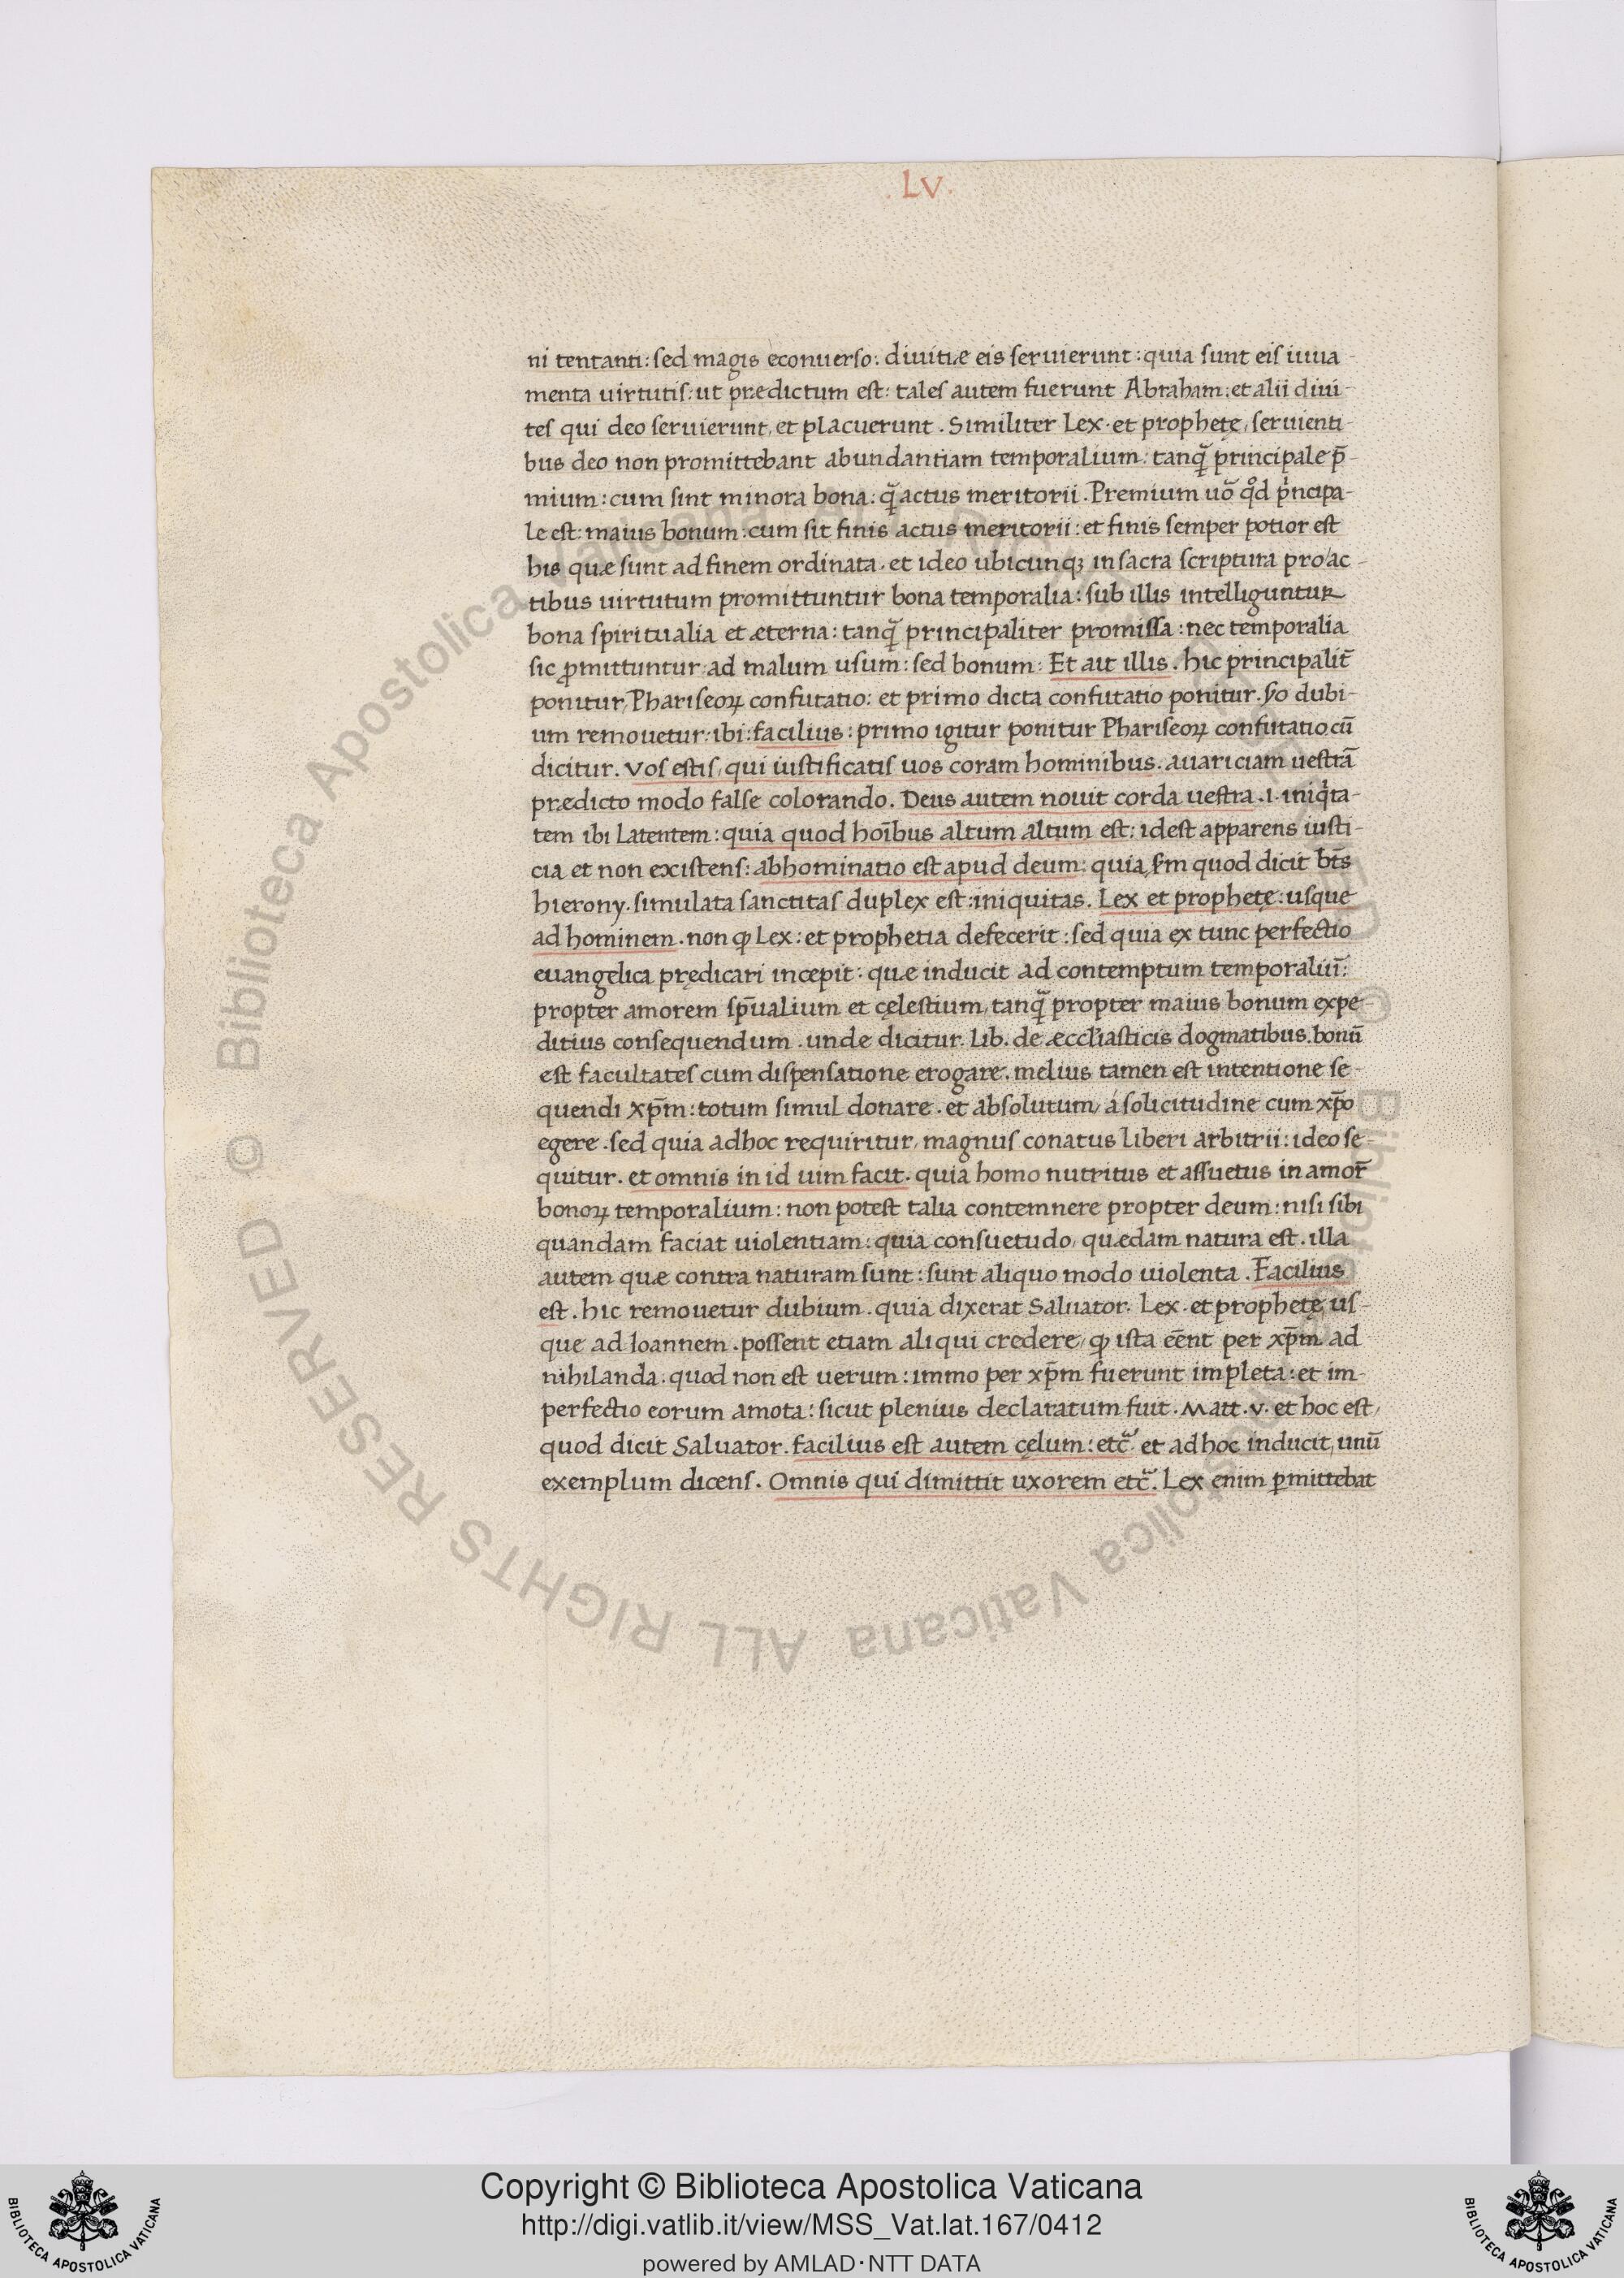 . LV .
ni tentanti : sed magis econuerso : diuitiæ eis seruierunt : quia sunt eis iuua-
menta uirtutis : ut prædictum est : tales autem fuerunt Abraham : et alii diui-
tes qui deo seruierunt, et placuerunt . Similiter Lex . et prophetę, seruienti-
bus deo non promittebant abundantiam temporalium : tanq̃ principale p̄-
mium : cum sint minora bona : q̃ actus meritorii . Premium uõ qͦd pͥncipa-
le est : maius bonum : cum sit finis actus meritorii : et finis semper potior est
his quæ sunt ad finem ordinata . et ideo ubicunqꝫ in sacra scriptura pro ac-
tibus uirtutum promittuntur bona temporalia : sub illis intelliguntur
bona spiritualia et æterna : tanq̃ principaliter promissa : nec temporalia
sic ꝓmittuntur : ad malum usum : sed bonum : Et ait illis . hic principalit̃
ponitur, Phariseoꝝ confutatio : et primo dicta confutatio ponitur . ẏo dubi-
um remouetur : ibi : facilius : primo igitur ponitur Phariseoꝝ confutatio. cū
dicitur . Vos estis, qui iustificatis uos coram hominibus . auariciam uestrā
prædicto modo false colorando . Deus autem nouit corda uestra . i . iniqͥta-
tem ibi Latentem : quia quod hoībus altum altum est : idest apparens iusti-
cia et non existens : abhominatio est apud deum : quia, ẜm quod dicit bt̄s
hierony . simulata sanctitas duplex est : iniquitas . Lex et prophetę : usque
ad hominem . non ꝙ Lex : et prophetia defecerit : sed quia ex tunc perfectio
euangelica prędicari incepit : quæ inducit ad contemptum temporaliū :
propter amorem sp̄ualium et cęlestium, tanq̃ propter maius bonum expe
ditius consequendum . unde dicitur . Lib . de æccl'iasticis dogmatibus . bonū
est facultates cum dispensatione erogare . melius tamen est intentione se-
quendi xp̄m : totum simul donare . et absolutum, á solicitudine cum xp̄o
egere . sed quia adhoc requiritur, magnus conatus liberi arbitrii : ideo se-
quitur . et omnis in id uim facit . quia homo nutritus et assuetus in amor̃
bonoꝝ temporalium : non potest talia contemnere propter deum : nisi sibi
quandam faciat uiolentiam : quia consuetudo, quædam natura est . illa
autem quæ contra naturam sunt : sunt aliquo modo uiolenta . Facilius
est . hic remouetur dubium . quia dixerat Saluator . Lex . et prophetę us-
que ad Ioannem . possent etiam aliqui credere, ꝙ ista eēnt per xp̄m ad
nihilanda : quod non est uerum : immo per xp̄m fuerunt impleta : et im-
perfectio eorum amota : sicut plenius declaratum fuit . Matt . v . et hoc est,
quod dicit Saluator . facilius est autem cęlum : etc̃ . et ad hoc inducit, unū
exemplum dicens . Omnis qui dimittit uxorem etc̃ . Lex enim ꝑmittebat
Copyright © Biblioteca Apostolica Vaticana
http://digi.vatlib.it/view/MSS_Vat.lat.167/0412
powered by AMLAD·NTT DATA
BIBLIOTECA APOSTOLICA VATICANA
BIBLIOTECA APOSTOLICA VATICANA